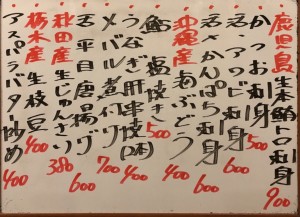 鹿児島産 生本鮪トロ刺身 900
かつお刺身 500
活〆アワビ刺身 600
活〆かんぱち刺身 600
沖縄産 海ぶどう 400
鮎塩焼き 500
うなぎ肝串焼
メバル煮付け 700
舌平目唐揚げ 600
秋田産 生じゅんさい 380
栃木産 生枝豆 400
アスパラバター炒め 400